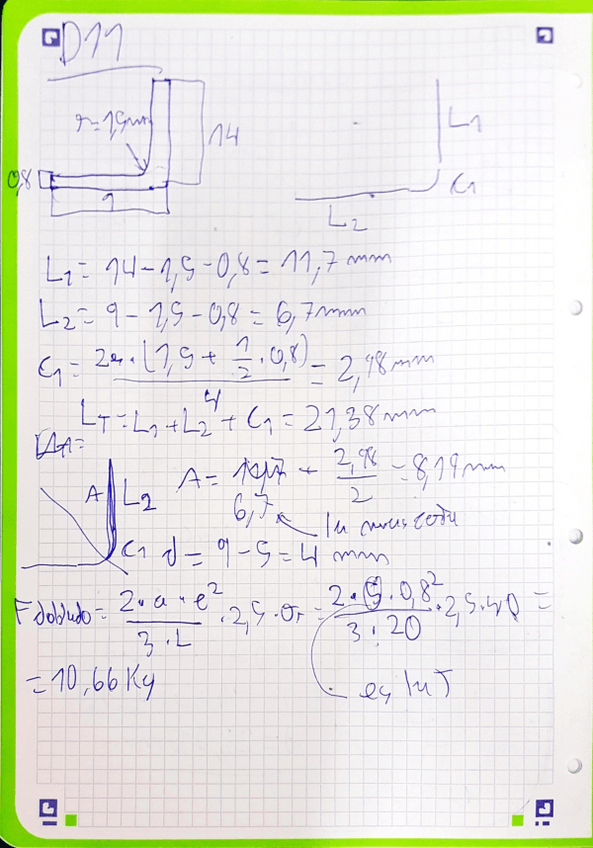 D11
r=1,5mm
14
0,8
9
L1
C1
L2
L1 = 14-1,5-0,8 = 11,7 mm
L2 = 9-1,5-0,8 = 6,7mm
C1 = 2π·(1,5 + 1/2·0,8)/4 = 2,98 mm
LT = L1+L2+C1 = 21,38mm
A L2
C1
A = 6,7 + 2,98/2 = 8,19mm
d = 9-5 = 4 mm
F doblado = 2·a·e²/3·L ·2,5·σr = 2·5·0,8²/3·20 ·2,5·40 =
= 10,66 Kg
es la T